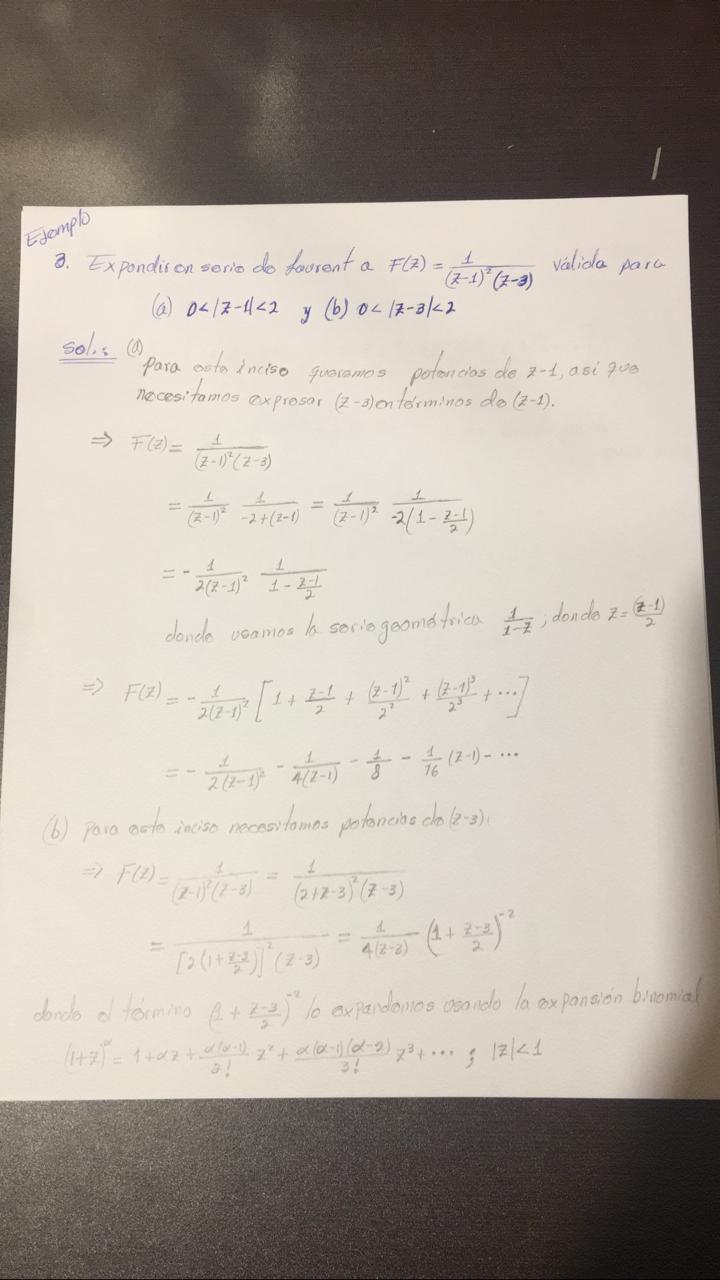 Ejemplo
3. Expandir en serie de Laurent a F(z) = 1/((z-1)²(z-3)) válida para
(a) 0<|z-1|<2 y (b) 0<|z-3|<2
Sol.: (a)
Para este inciso queremos potencias de z-1, así que
necesitamos expresar (z-3) en términos de (z-1).
⇒ F(z) = 1/((z-1)²(z-3))
= 1/(z-1)² 1/(-2+(z-1)) = 1/(z-1)² 1/(-2(1 - (z-1)/2))
= - 1/(2(z-1)²) 1/(1 - (z-1)/2)
donde usamos la serie geométrica 1/(1-z), donde z = (z-1)/2
⇒ F(z) = - 1/(2(z-1)²) [1 + (z-1)/2 + (z-1)²/2² + (z-1)³/2³ + ...]
= - 1/(2(z-1)²) - 1/(4(z-1)) - 1/8 - 1/16 (z-1) - ...
(b) Para este inciso necesitamos potencias de (z-3).
⇒ F(z) = 1/((z-1)²(z-3)) = 1/((2+z-3)²(z-3))
= 1/([2(1+(z-3)/2)]²(z-3)) = 1/(4(z-3)) (1 + (z-3)/2)⁻²
donde el término (1 + (z-3)/2)⁻² lo expandemos usando la expansión binomial
(1+z)^α = 1+αz + α(α-1)/2! z² + α(α-1)(α-2)/3! z³ + ... ; |z|<1